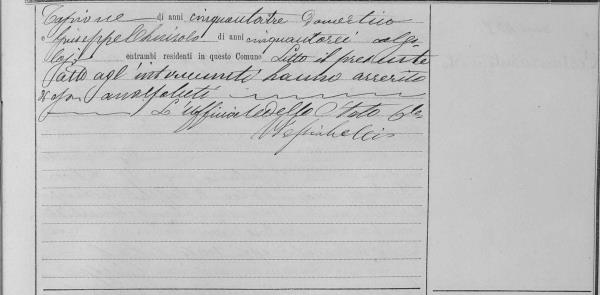 di anni cinquantatre domestico
e Giuseppe di anni cinquantasei calzo-
laio entrambi residenti in questo Comune Letto il presente
atto agl'intervenuti hanno asserito
analfabeti
L'Uffiziale dello Stato Civile